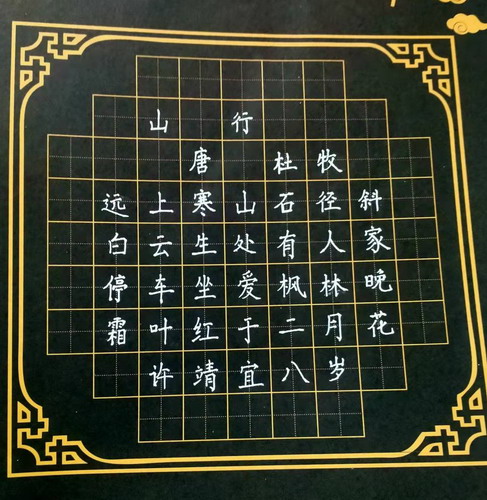 山行
唐 杜牧
远上寒山石径斜
白云生处有人家
停车坐爱枫林晚
霜叶红于二月花
许靖宜八岁